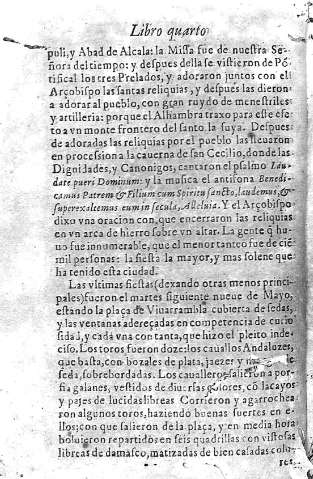 Libro quarto
puli, y Abad de Alcala: la Missa fue de nuestra Se-
ñora del tiempo: y despues della se vistieron de Põ-
tifical los tres Prelados, y adoraron juntos con el
Arçobispo las santas reliquias, y despues las dieron
a adorar al pueblo, con gran ruydo de menestriles
y artilleria: porque el Alhambra traxo para este efe-
to a vn monte frontero del santo la suya. Despues
de adoradas las reliquias por el pueblo las lleuaron
en procession a la cauerna de san Cecilio, donde las
Dignidades, y Canonigos, cantaron el psalmo Lau-
date pueri Dominum: y la musica el antifona Benedi-
camus Patrem & Filium cum Spiritu sancto, laudemus, &
superexaltemus eum in secula, Alleluia. Y el Arçobispo
dixo vna oracion con que encerraron las reliquias
en vn arca de hierro sobre vn altar. La gente q̃ hu
uo fue innumerable, que el menor tanteo fue de ciẽ
mil personas: la fiesta la mayor, y mas solene que
ha tenido esta ciudad.
Las vltimas fiestas (dexando otras menos princi-
pales) fueron el martes siguiente nueue de Mayo,
estando la plaça de Viuarrambla cubierta de sedas,
y las ventanas adereçadas en competencia de curio
sidad, y cada vna con tanta, que hizo el pleito inde-
ciso. Los toros fueron doze: los cauallos Andaluzes,
que basta, con bozales de plata, jaezes y
seda, sobrebordadas. Los caualleros salieron a por-
fia galanes, vestidos de diuersas colores, cõ lacayos
y pajes de lucidas libreas Corrieron y agarrochea
ron algunos toros, haziendo buenas suertes en e-
llos; con que salieron de la plaça, y en media hora
boluieron repartidos en seis quadrillas con vistosas
libreas de damasco, matizadas de bien casadas colo-
res